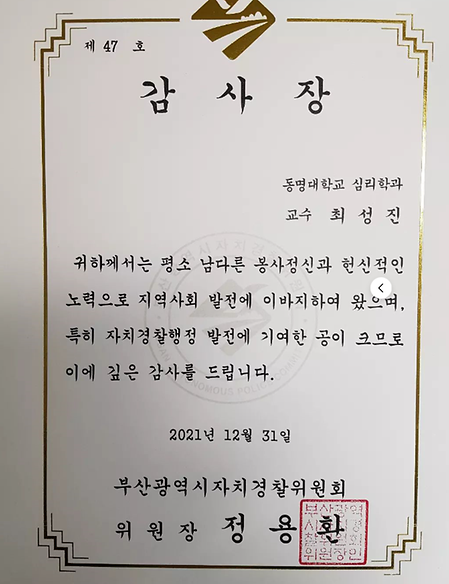 제 47 호
감 사 장
동명대학교 심리학과
교수 최성진
귀하께서는 평소 남다른 봉사정신과 헌신적인
노력으로 지역사회 발전에 이바지하여 왔으며,
특히 자치경찰행정 발전에 기여한 공이 크므로
이에 깊은 감사를 드립니다.
2021년 12월 31일
부산광역시자치경찰위원회
위 원 장 정 용 환
부산광역
시자치경
찰위원회
위원장인